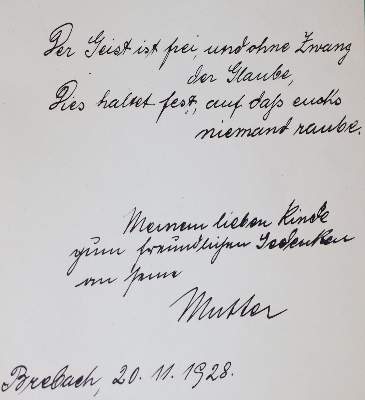 Der Geist ist frei, und ohne Zwang
der Glaube,
Dies haltet fest, auf daß euchs
niemand raube.
Meinem lieben Kinde
zum freundlichen Gedenken
an seine
Mutter
Brebach, 20. 11. 1928.